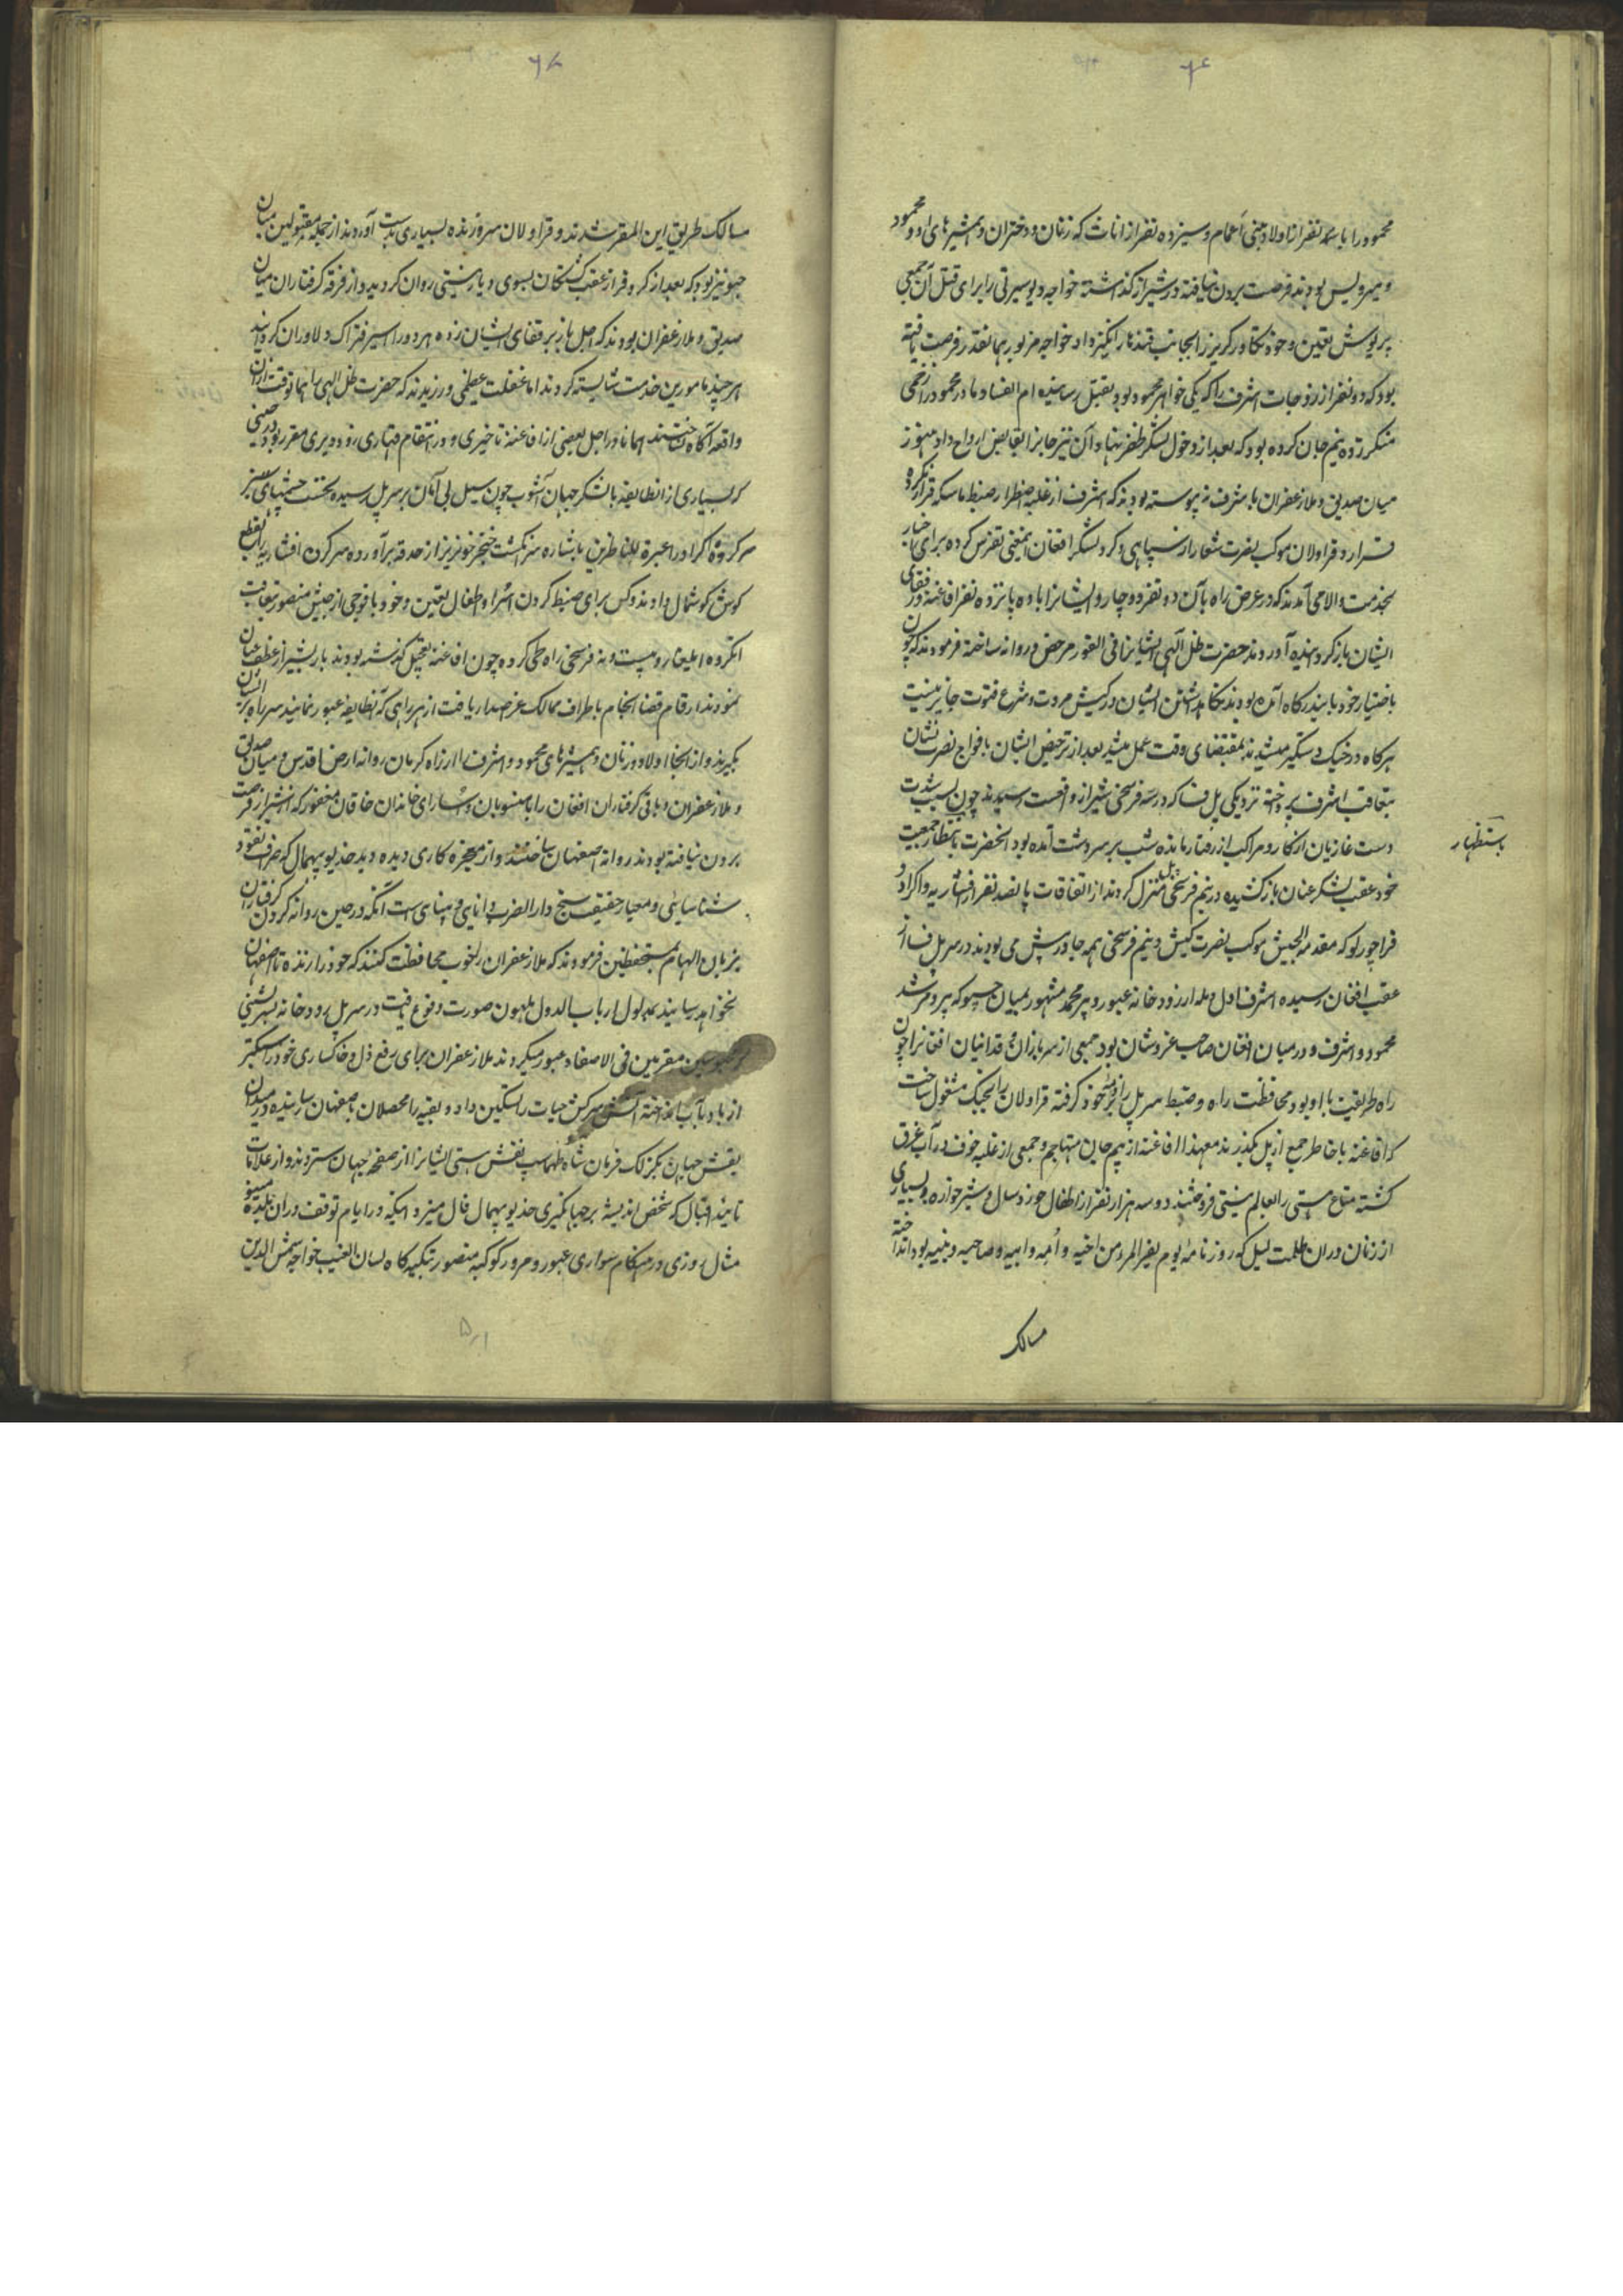 ۶۶
محمود را با سه نفر از اولاد و بنی اعمام و سیزده نفر از اناث که زنان و دختران و همشیرهای او و محمود
و میرویس بودند فرصت بردن نیافته در شیراز گذاشته خواجه دیو سیرتی را برای قتل آن جمعی
پریوش تعیین و خود تکاور گریز را بجانب قندهار انگیز داد خواجه مزبور همانقدر فرصت یافته
بود که دو نفر از زوجات اشرف را که یکی خواهر محمود بود بقتل رسانیده ام الفساد مادر محمود را زخمی
منکر زده نیم جان کرده بود که بعد از دخول لشکر ظفر بنیاد آن نیز جان را بقابض ارواح داد هنوز
میان صدیق و ملا زعفران با شرف نه پیوسته بودند که اشرف از غلبه اضطرار ضبط ماسکه قرار نکرده
فرار و قراولان موکب نصرت شعار از سپاهی و گرد لشکر افغان اینمعنی تفرس کرده برای اخبار
بخدمت والا می آمدند که در عرض راه بآن دو نفر دوچار و ایشان را با ده پانزده نفر افاغنه و رفقای
ایشان بازگردانیده آوردند حضرت ظل اللهی ایشانرا فی الفور مرخص و روانه ساخته فرمودند که چون
باختیار خود باین درگاه آمده بودند نگاهداشتن ایشان در کیش مروت و شرع فتوت جایز نیست
هرگاه در جنگ دستگیر میشدند بمقتضای وقت عمل میشد بعد از ترخیص ایشان با فواج نصرت نشان
بتعاقب اشرف پرداخته نزدیکی پل فسا که در سه فرسخی شیراز واقعست رسیدند چون بسبب شدت
دست غازیان از کار و مراکب از رفتار مانده شب بر سر دست آمده بود آنحضرت بانتظار جمعیت
خود عقب لشکر عنان باز کشیده در نیم فرسخی پل منزل کردند از اتفاقات پانصد نفر از افشاریه و اکراد و
قراچورلو که مقدمة الجیش موکب نصرت کیش و نیم فرسخی همه جا در پیش می بودند در سر پل فسا از
عقب افغان رسیده اشرف اول وهله از رودخانه عبور و پیر محمد مشهور بمیان جیو که پیر و مرشد
محمود و اشرف و در میان افغان صاحب عز و شان بود جمعی از سربازان و فدائیان افغانرا چون
راه طریقت با او بود محافظت راه و ضبط سر پل را بر ذمه خود گرفته قراولان را بجنگ مشغول ساخت
که افاغنه با خاطر جمع از پل بگذرند معهذا افاغنه از بیم جان متهاجم و جمعی از غلبه خوف در آب غرق
گشته متاع هستی را بعالم نیستی فروختند و دو سه هزار نفر از اطفال خورد سال و شیر خواره و بسیاری
از زنان در آن ظلمت لیل که روز نامه یوم یفر المرء من اخیه و امه و ابیه و صاحبته و بنیه بود انداخته
باستظهار
مسالک
۶۷
مسالک طریق این المفر شدند و قراولان سر و زنده بسیاری بدست آوردند از جمله مقتولین میان
جیو نیز بود که بعد از کر و فر از عقب گذشتگان بسوی دیار نیستی روان گردید و از فرقه گرفتاران میان
صدیق و ملا زعفران بودند که اجل باز بر قفای ایشان زده هر دو را اسیر فتراک دلاوران گردانید
هر چند مامورین خدمت شایسته کردند اما غفلت عظمی ورزیدند که حضرت ظل اللهی را همان وقت از آن
واقعه آگاه نساختند همانا در اجل بعضی از افاغنه تاخیری و در انتقام قهاری زود و دیری مقرر بود در حینی
که بسیاری از انطایفه با لشکر جهان آشوب چون سیل بی امان بر سر پل رسیده نخست چشمهای
سرکرده اکراد را عبرة للناظرین باشاره سر انگشت خنجر خونریز از حدقه برآورده سرکردن افشاریه را بقطع
گوش گوشمال دادند و کس برای ضبط کردن اسرا و اطفال تعیین و خود با فوجی از جیش منصور بتعاقب
انگروه ایلغار و بیست و نه فرسخی راه طی کرده چون افاغنه بتعجیل گذشته بودند بار بشیراز عطف عنان
نمودند ارقام قضا انجام باطراف ممالک عز صدار یافت از هر راهی که آنطایفه عبور نمایند سر راه بر ایشان
بگیرند و از آنجا اولاد و زنان و همشیرهای محمود و اشرف را از راه کرمان روانه ارض اقدس و میان صدیق
و ملا زعفران و باقی گرفتاران افغان را با منسوبان و اسارای خاندان خاقان مغفور که اشرف فرصت
بردن نیافته بودند روانه اصفهان ساختند و از معجزه کاری دیده دید خدیو بیهمال که صراف نقود
شناسائی و معیار حقیقت سنج دارالضرب دانایی و بینایی است آنکه در حین روانه کردن گرفتاران
بزبان الهام بمستحفظین فرمودند که ملا زعفران را خوب محافظت کنند که خود را زنده تا اصفهان
نخواهد رسانید بمدلول ارباب الدول ملهمون صورت وقوع یافت در سر پل رودخانه
محبوسین مقرنین فی الاصفاد عبور میکردند ملا زعفران برای رفع ذل و خاکساری خود را سبکتر
از باد بآب انداخته آتش سرکش حیات را تسکین داد و بقیه را محصلان باصفهان رسانیده در میدان
نقش جهان بکزلک فرمان شاه طهماسب نقش هستی ایشانرا از صفحه جهان ستردند و از علامات
تایید اقبال که شخص اندیشه بر جهانگیری خدیو بیهمال فال میزد اینکه در ایام توقف در آن بلده مینو
مثال روزی در هنگام سواری عبور و مرور کوکبه منصور بتکیه گاه لسان الغیب خواجه شمس الدین